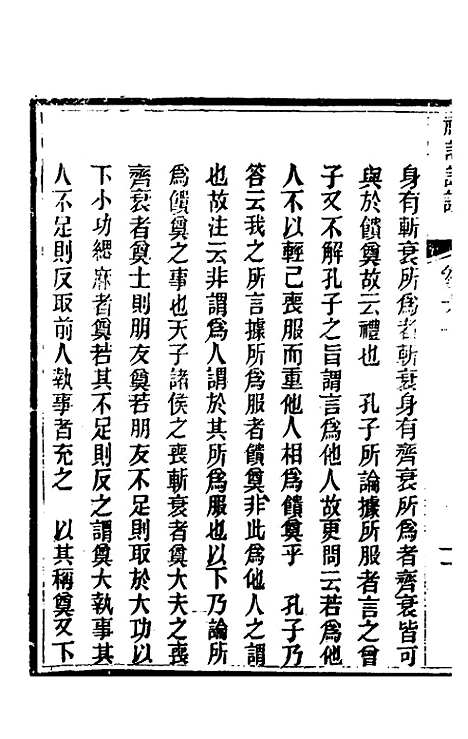 身有斬衰所爲者斬衰身有齊衰所爲者齊衰皆可
與於饋奠故云禮也　孔子所論據所服者言之曾
子又不解孔子之旨謂言爲他人故更問云若爲他
人不以輕己喪服而重他人相爲饋奠乎　孔子乃
答云我之所言據所爲服者饋奠非此爲他人之謂
也故注云非謂爲人謂於其所爲服也以下乃論所
爲饋奠之事也天子諸侯之喪斬衰者奠大夫之喪
齊衰者奠士則朋友奠若朋友不足則取於大功以
下小功緦麻者奠若其不足則反之謂奠大執事其
人不足則反取前人執事者充之　以其稱奠又下